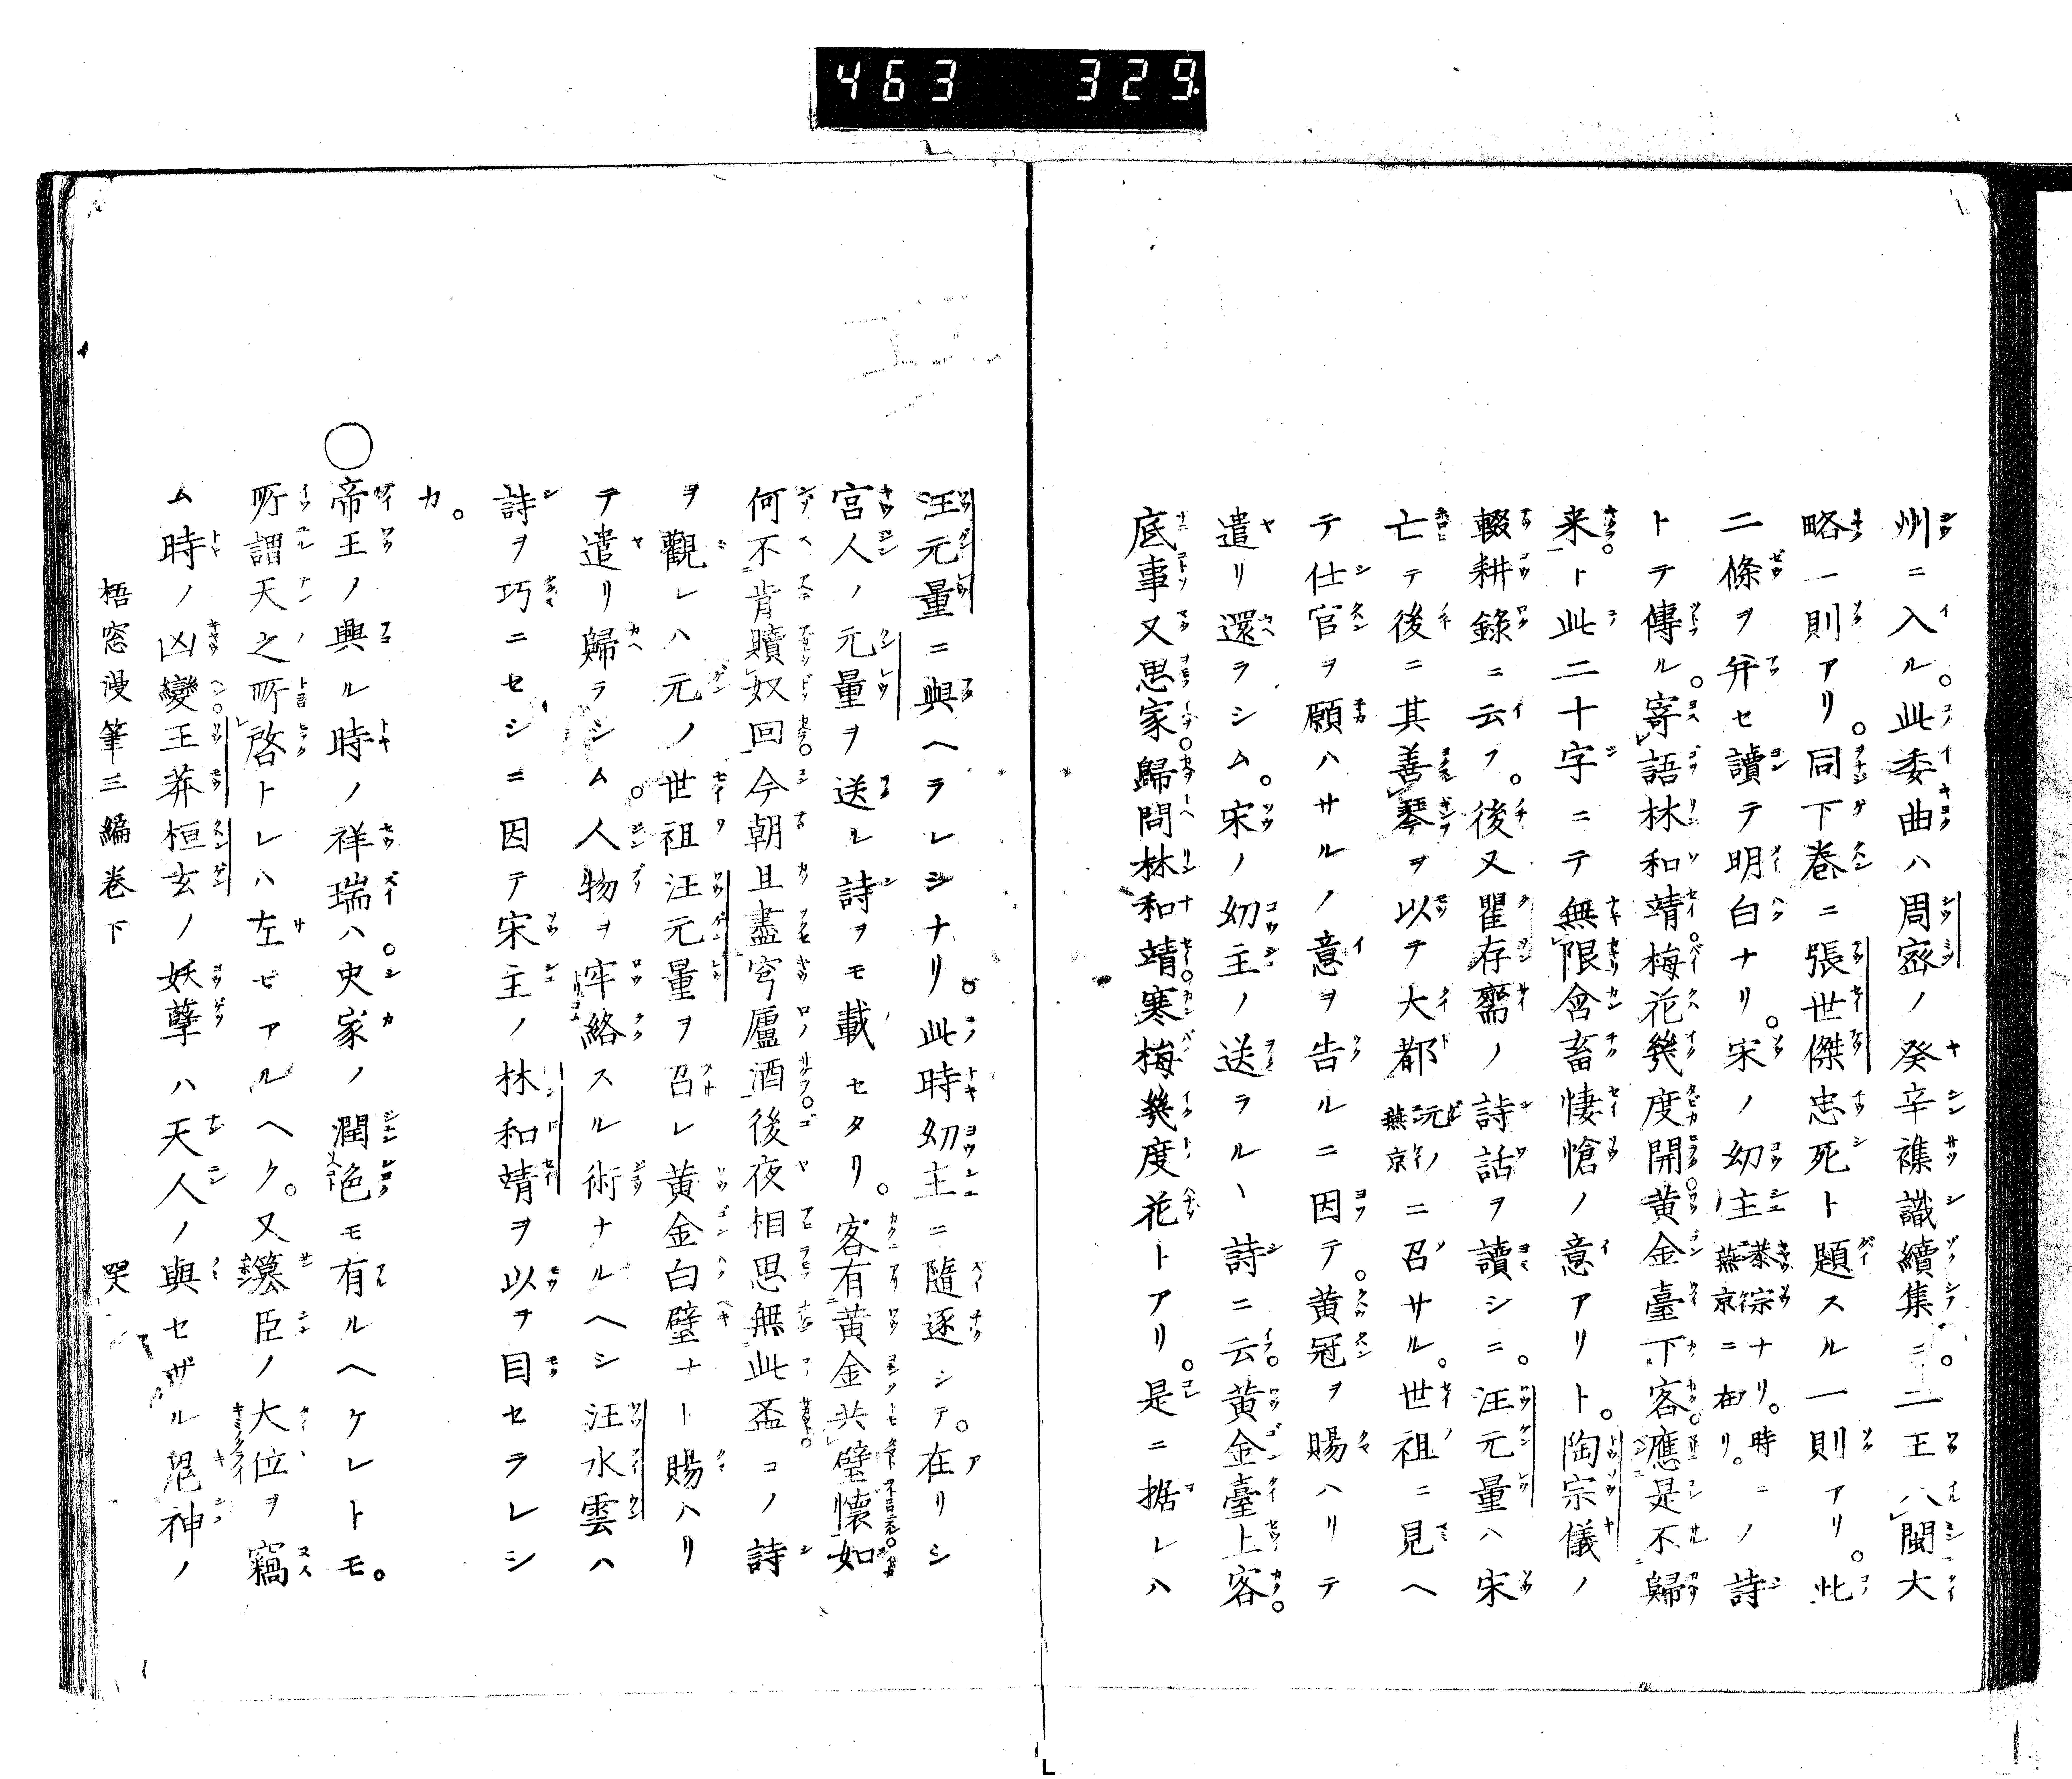 463 329
州ニ入ル。此委曲ハ周密ノ癸辛襍識續集ニ。二王入閩大
略一則アリ。同下巻ニ張世傑忠死ト題スル一則アリ。此
二條ヲ并セ讀テ明白ナリ。宋ノ幼主恭宗ナリ。時ニ燕京ニ在リ。ノ詩
トテ傳ル。寄語林和靖。梅花幾度開。黄金臺下客。應是不歸
来。ト此二十字ニテ無限含畜悽愴ノ意アリト。陶宗儀ノ
輟耕錄ニ云フ。後又瞿存齋ノ詩話ヲ讀シニ。汪元量ハ宋
亡テ後ニ其善琴ヲ以テ大都元ノ燕京ニ召サル。世祖ニ見ヘ
テ仕官ヲ願ハサルノ意ヲ告ルニ因テ。黄冠ヲ賜ハリテ
遣リ還ラシム。宋ノ幼主ノ送ラルヽ詩ニ云。黄金臺上客。
底事又思家。歸問林和靖。寒梅幾度花トアリ。是ニ据レハ
汪元量ニ與ヘラレシナリ。此時幼主ニ隨逐シテ。在リシ
宮人ノ元量ヲ送レ詩ヲモ載セタリ。客有黄金共璧懷。如
何不肯贖奴回。今朝且盡穹廬酒。後夜相思無此盃。コノ詩
ヲ觀レハ元ノ世祖汪元量ヲ召レ黄金白璧ナト賜ハリ
テ遣リ歸ラシム。人物ヲ牢絡スル術ナルヘシ汪水雲ハ
詩ヲ巧ニセシニ因テ宋主ノ林和靖ヲ以ヲ目セラレシ
カ。
○帝王ノ興ル時ノ祥瑞ハ。史家ノ潤色モ有ルヘケレトモ。
所謂天之所啓トレハ左ゼアルヘク。又簒臣ノ大位ヲ竊
ム時ノ凶變。王莽桓玄ノ妖孽ハ天人ノ與セザル鬼神ノ
梧窓漫筆三編巻下